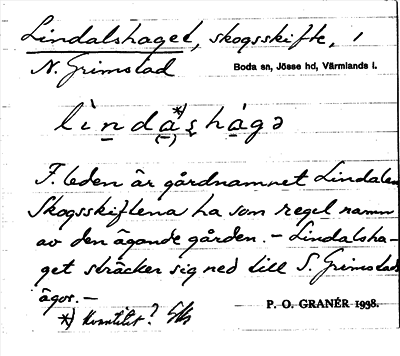 Lindalshaget, skogsskifte, i
N. Grimstad
Boda sn, Jösse hd, Värmlands l.
F. leden är gårdnamnet Lindalen
Skogsskiftena ha som regel namn
av den ägande gården. – Lindalsha-
get sträcker sig ned till S. Grimstad
ägor. –
P. O. GRANÉR 1938.
*) Kvantitet?